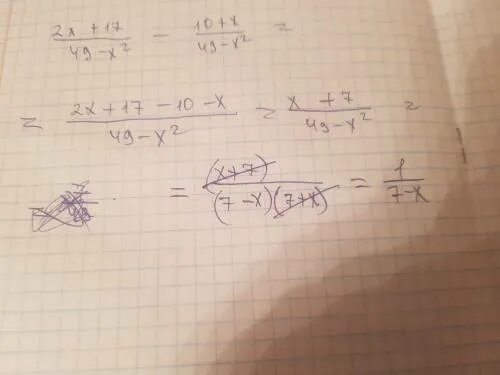 (2x + 17)/(49 - x²) - (10 + x)/(49 - x²) =
= (2x + 17 - 10 - x)/(49 - x²) = (x + 7)/(49 - x²) =
= (x + 7)/((7 - x)(7 + x)) = 1/(7 - x)